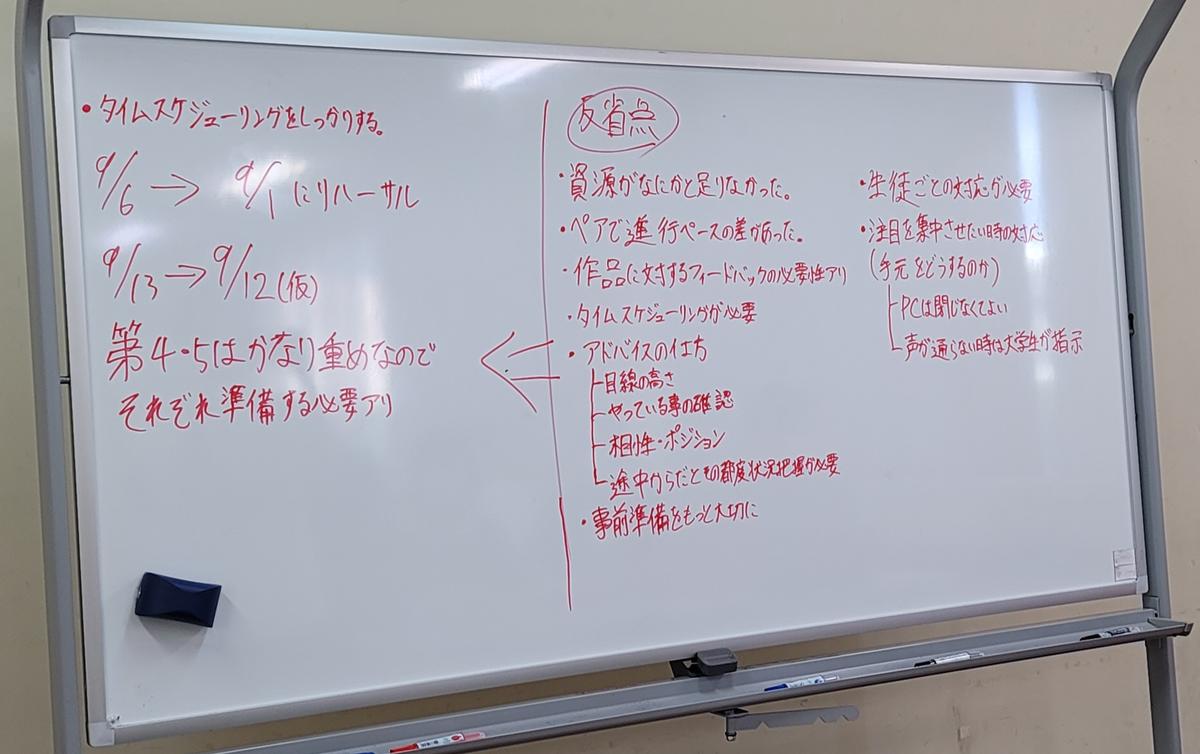 ・タイムスケジューリングをしっかりする。
9/6 → 9/1 にリハーサル
9/13 → 9/12(仮)
第4・5はかなり重めなので
それぞれ準備する必要アリ
反省点
・資源がなにかと足りなかった。
・ペアで進行ペースの差があった。
・作品に対するフィードバックの必要性アリ
・タイムスケジューリングが必要
・アドバイスの仕方
目線の高さ
やっている事の確認
相性・ポジション
途中からだとその都度状況把握が必要
・事前準備をもっと大切に
・生徒ごとの対応が必要
・注目を集中させたい時の対応
(手元をどうするのか)
PCは閉じなくてよい
声が通らない時は大学生が指示